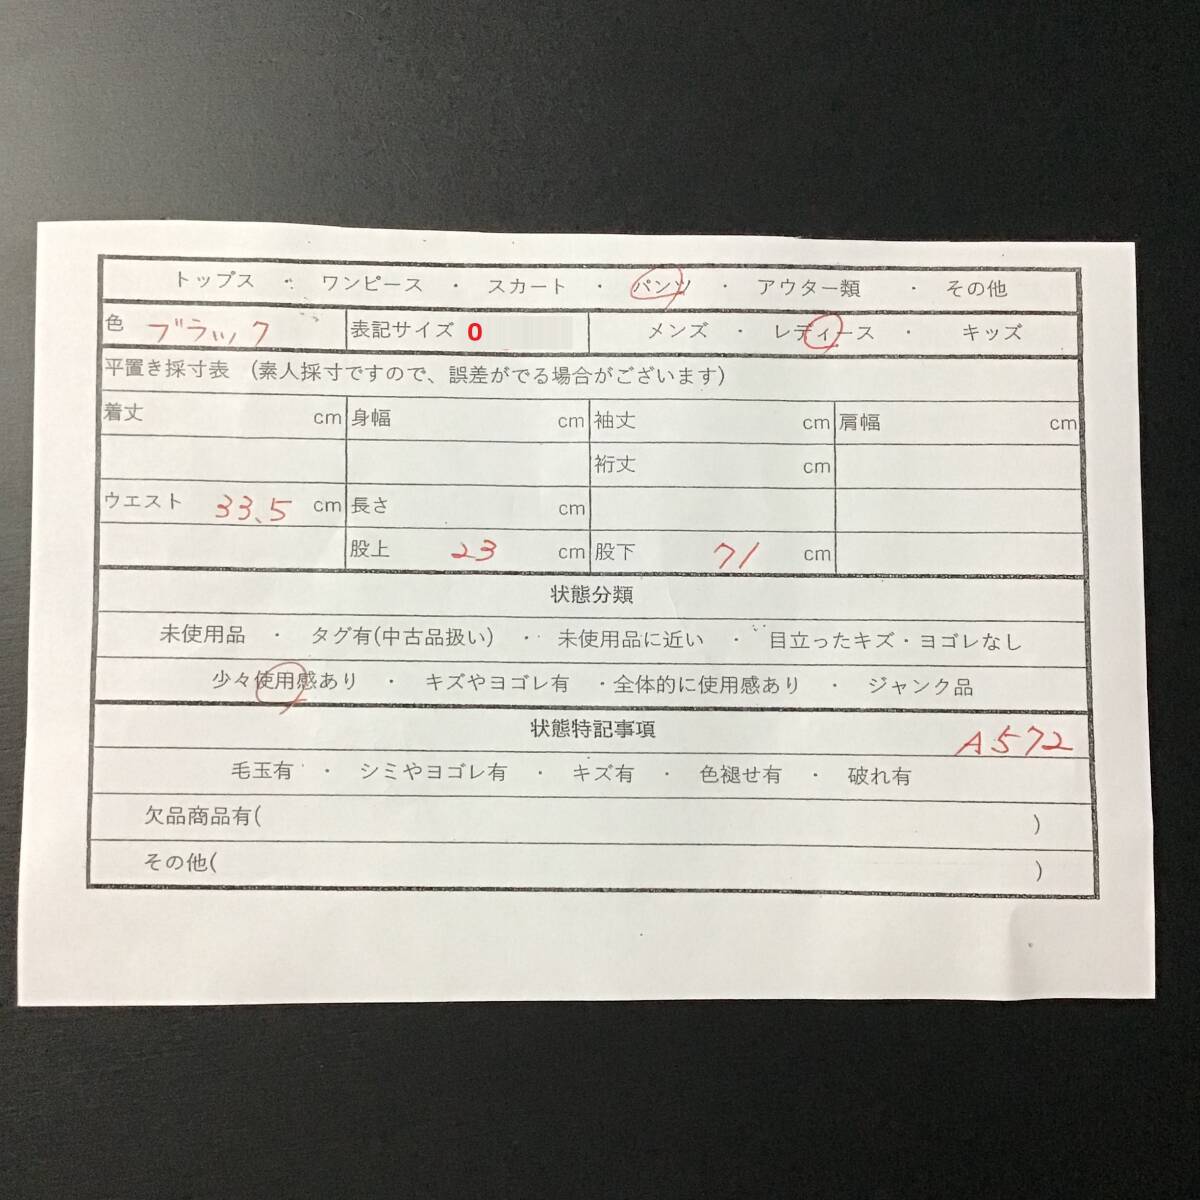 トップス ・ ワンピース ・ スカート ・ パンツ ・ アウター類 ・ その他
色 ブラック 表記サイズ 0 メンズ ・ レディース ・ キッズ
平置き採寸表 (素人採寸ですので、誤差がでる場合がございます)
着丈 cm 身幅 cm 袖丈 cm 肩幅 cm
裄丈 cm
ウエスト 33.5 cm 長さ cm
股上 23 cm 股下 71 cm
状態分類
未使用品 ・ タグ有(中古品扱い) ・ 未使用品に近い ・ 目立ったキズ・ヨゴレなし
少々使用感あり ・ キズやヨゴレ有 ・全体的に使用感あり ・ ジャンク品
状態特記事項 A572
毛玉有 ・ シミやヨゴレ有 ・ キズ有 ・ 色褪せ有 ・ 破れ有
欠品商品有( )
その他( )